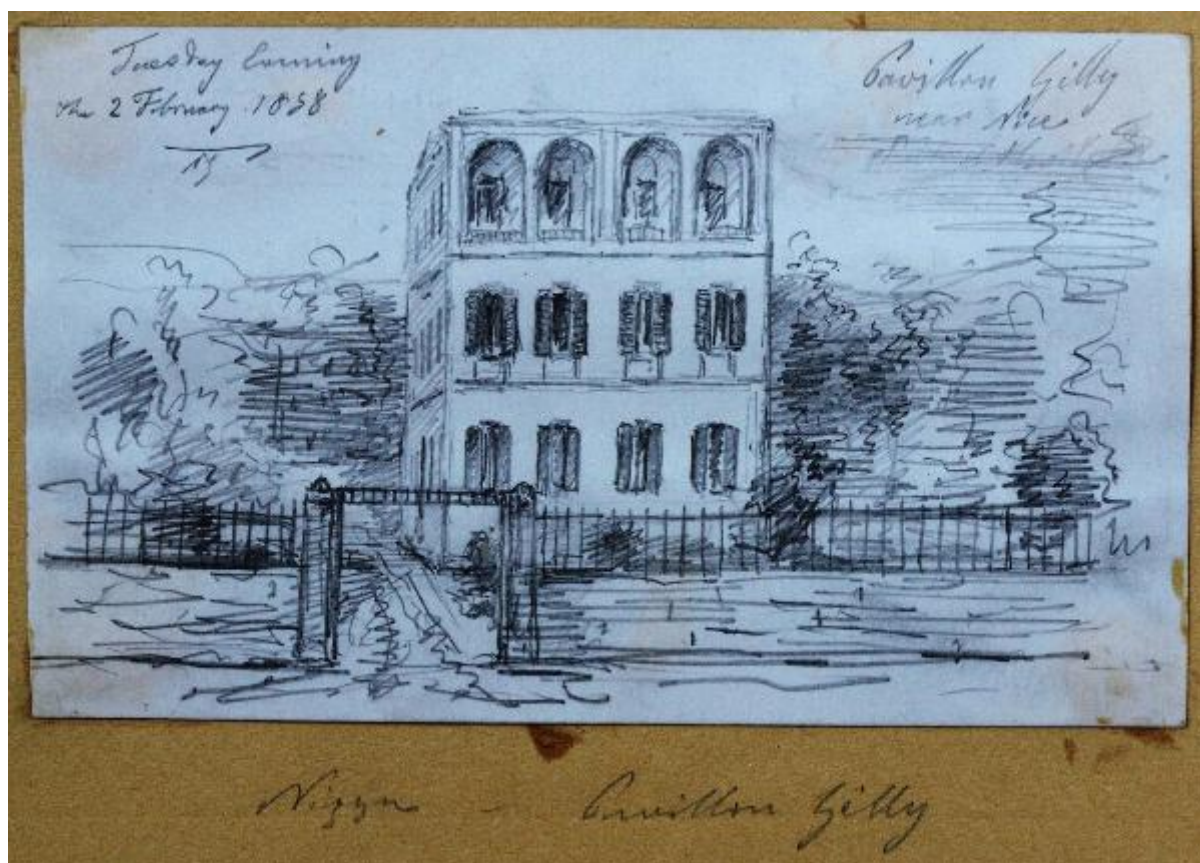 Tuesday
the 2 February 1858
Pavillon Gilly
near Nice
Nizza - Pavillon Gilly